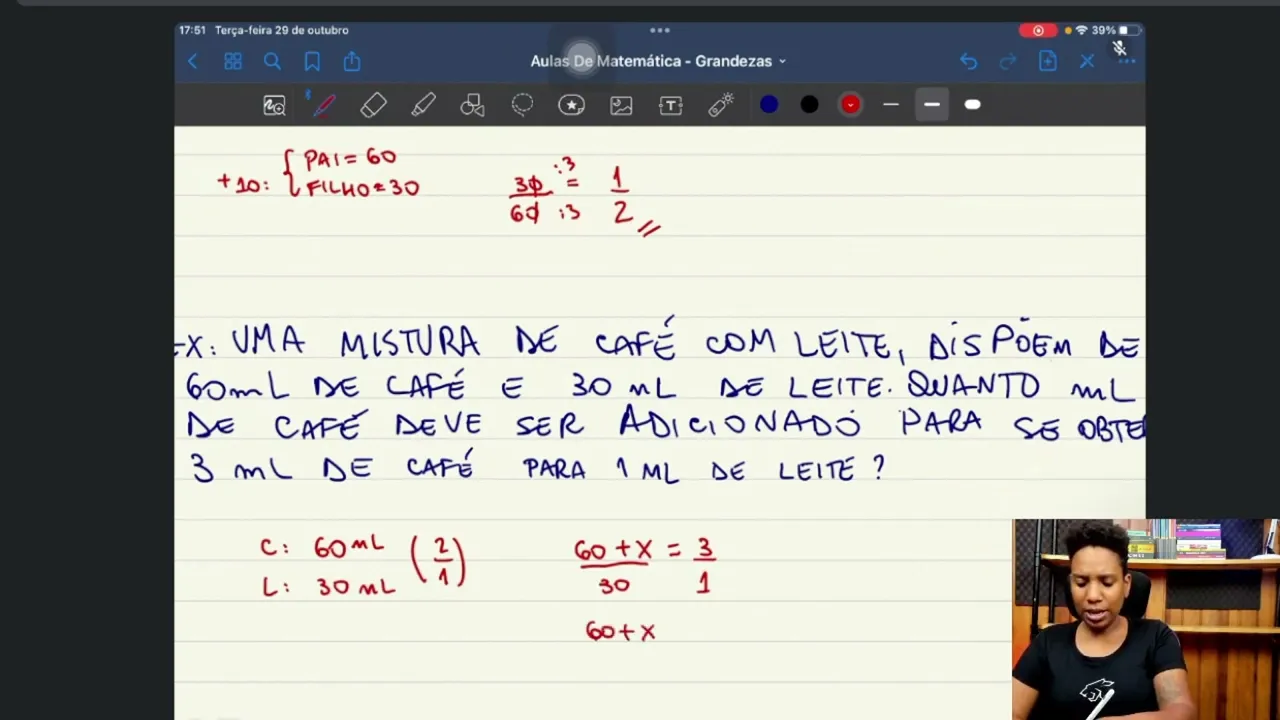 17:51 Terça-feira 29 de outubro
39%
Aulas De Matemática - Grandezas
+10: { PAI = 60
FILHO = 30
30 :3 = 1
60 :3 2
-X: UMA MISTURA DE CAFÉ COM LEITE, DISPÕEM DE
60mL DE CAFÉ E 30 mL DE LEITE. QUANTO mL
DE CAFÉ DEVE SER ADICIONADO PARA SE OBTE
3 mL DE CAFÉ PARA 1 ML DE LEITE?
C: 60 mL (2
L: 30 mL 1)
60 + X = 3
30 1
60 + X